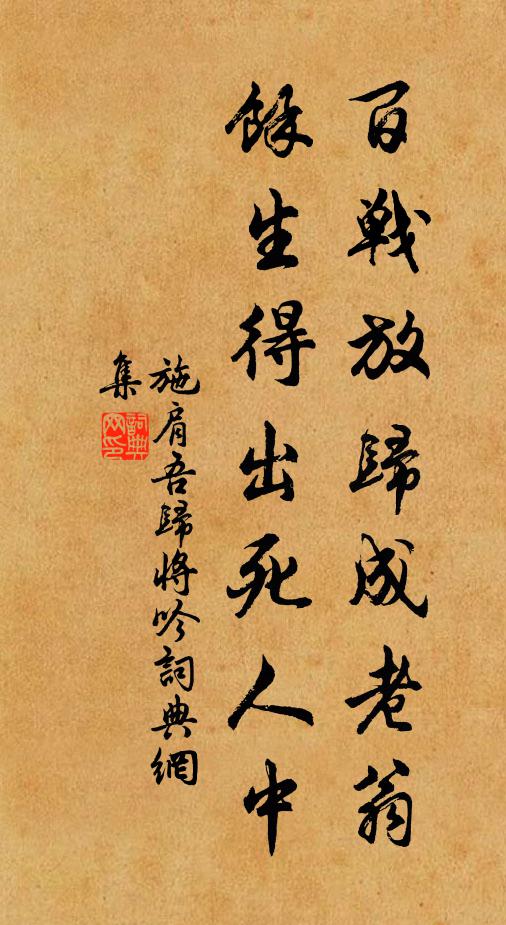 百戰放歸成老翁
餘生得出死人中
施肩吾歸將吟詞典網
集
詞典网印